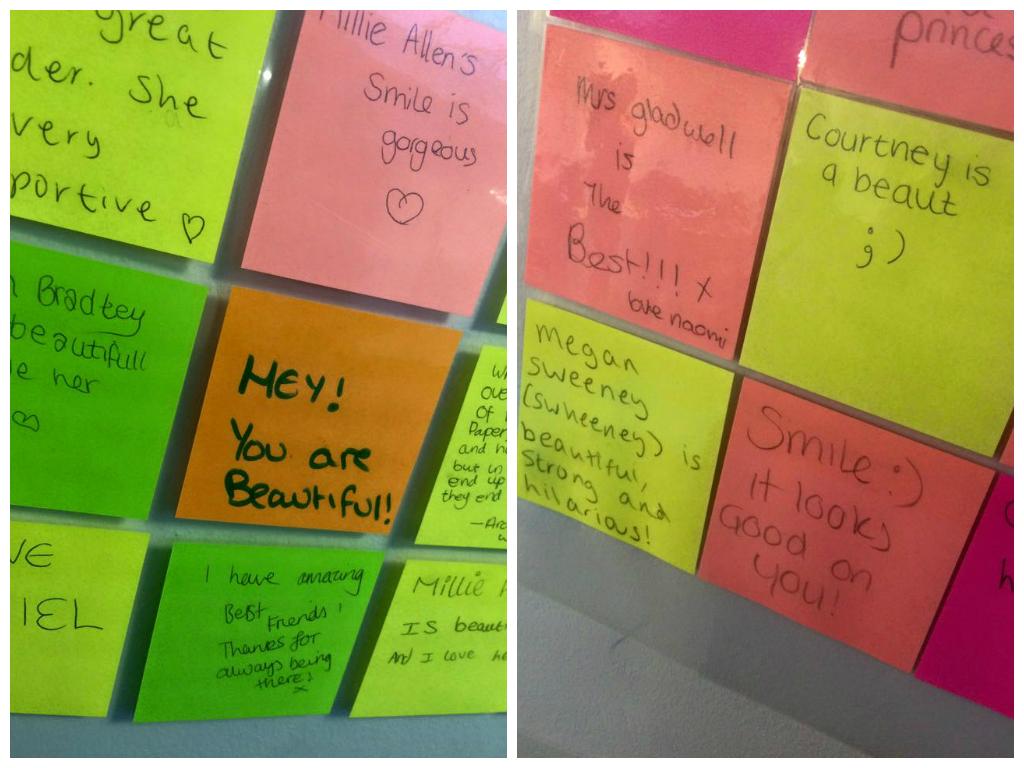 great
der. She
very
portive ♡
Millie Allen's
Smile is
gorgeous
♡
Bradley
beautifull
e her
♡
HEY!
You are
Beautiful!
over
Of
Paper
and h
but in
end up
they end
VE
IEL
I have amazing
Best Friends!
Thanks for
always being
there!
x
Millie A
IS beaut
And I love he
princes
Mrs gladwell
is
The
Best!!! x
love naomi
Courtney is
a beaut
;)
Megan
Sweeney
(Swheeney) is
beautiful,
Strong and
hilarious!
Smile :)
it looks
Good on
You!